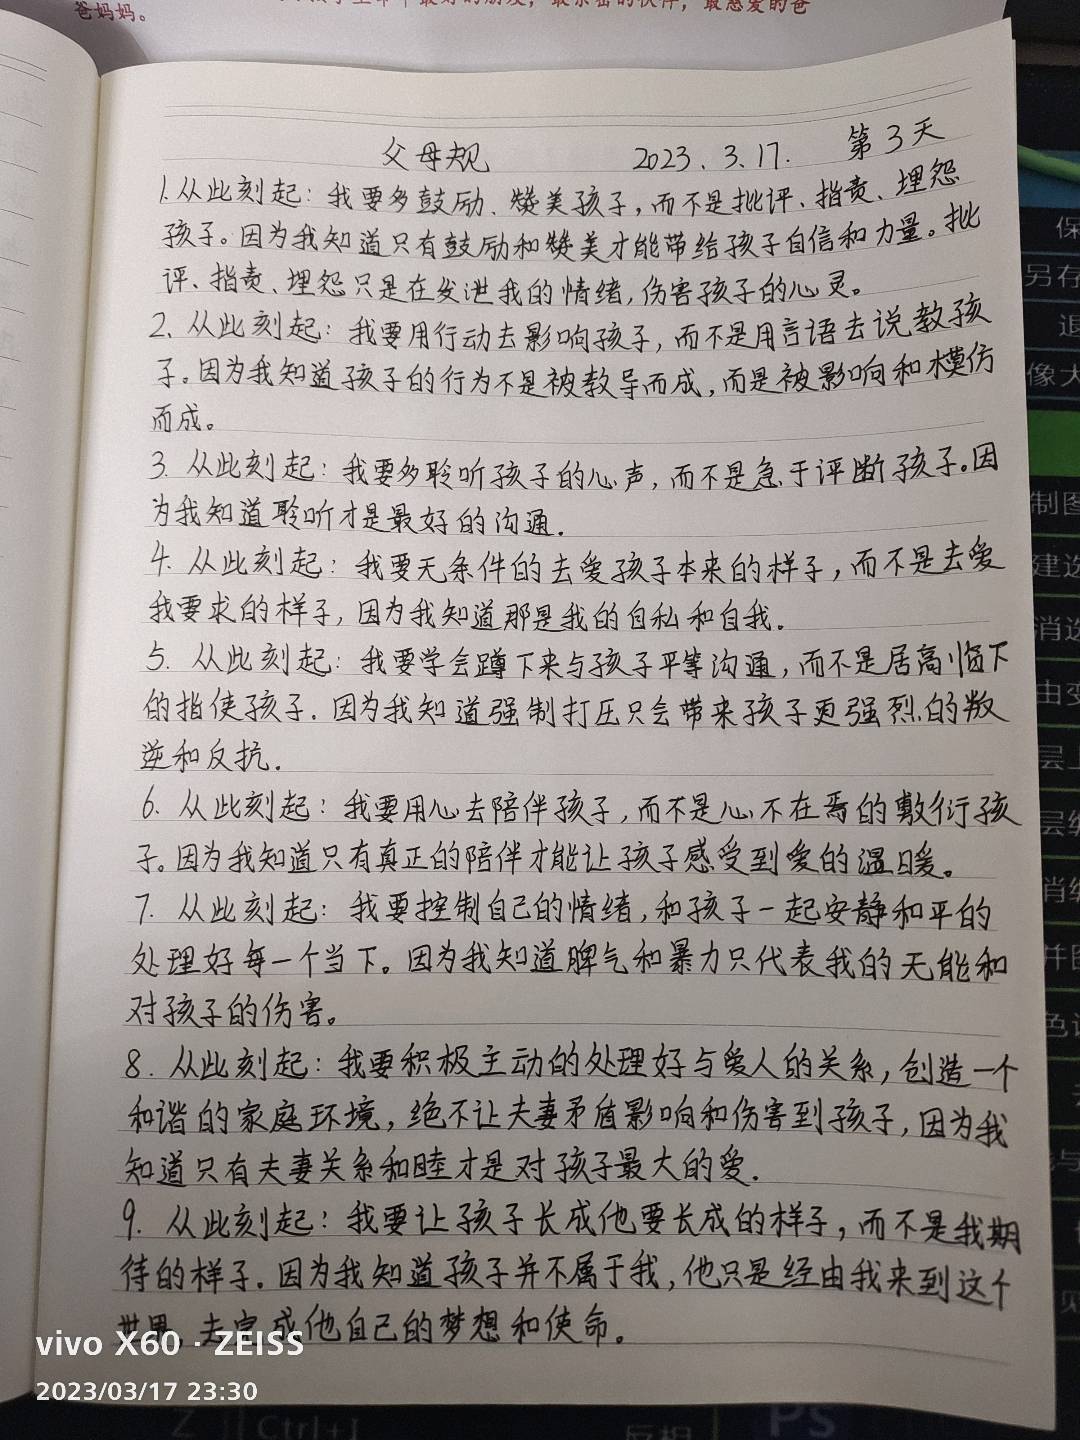 最亲密的伙伴，最慈爱的爸
爸妈妈。
父母规 2023.3.17. 第3天
1.从此刻起：我要多鼓励、赞美孩子，而不是批评、指责、埋怨
孩子。因为我知道只有鼓励和赞美才能带给孩子自信和力量。批
评、指责、埋怨只是在发泄我的情绪，伤害孩子的心灵。
2、从此刻起：我要用行动去影响孩子，而不是用言语去说教孩
子。因为我知道孩子的行为不是被教导而成，而是被影响和模仿
而成。
3.从此刻起：我要多聆听孩子的心声，而不是急于评断孩子。因
为我知道聆听才是最好的沟通.
4.从此刻起：我要无条件的去爱孩子本来的样子，而不是去爱
我要求的样子，因为我知道那是我的自私和自我.
5.从此刻起：我要学会蹲下来与孩子平等沟通，而不是居高临下
的指使孩子.因为我知道强制打压只会带来孩子更强烈的叛
逆和反抗.
6.从此刻起：我要用心去陪伴孩子，而不是心不在焉的敷衍孩
子。因为我知道只有真正的陪伴才能让孩子感受到爱的温暖。
7.从此刻起：我要控制自己的情绪，和孩子一起安静和平的
处理好每一个当下。因为我知道脾气和暴力只代表我的无能和
对孩子的伤害。
8.从此刻起：我要积极主动的处理好与爱人的关系，创造一个
和谐的家庭环境，绝不让夫妻矛盾影响和伤害到孩子，因为我
知道只有夫妻关系和睦才是对孩子最大的爱.
9.从此刻起：我要让孩子长成他要长成的样子，而不是我期
待的样子.因为我知道孩子并不属于我，他只是经由我来到这个
世界，去完成他自己的梦想和使命。
vivo X60 · ZEISS
2023/03/17 23:30
保
另存
退
像大
制图
建选
消选
由变
层上
层编
肖编
并图
色调
见
Z
Ctrl+I
反相
PS